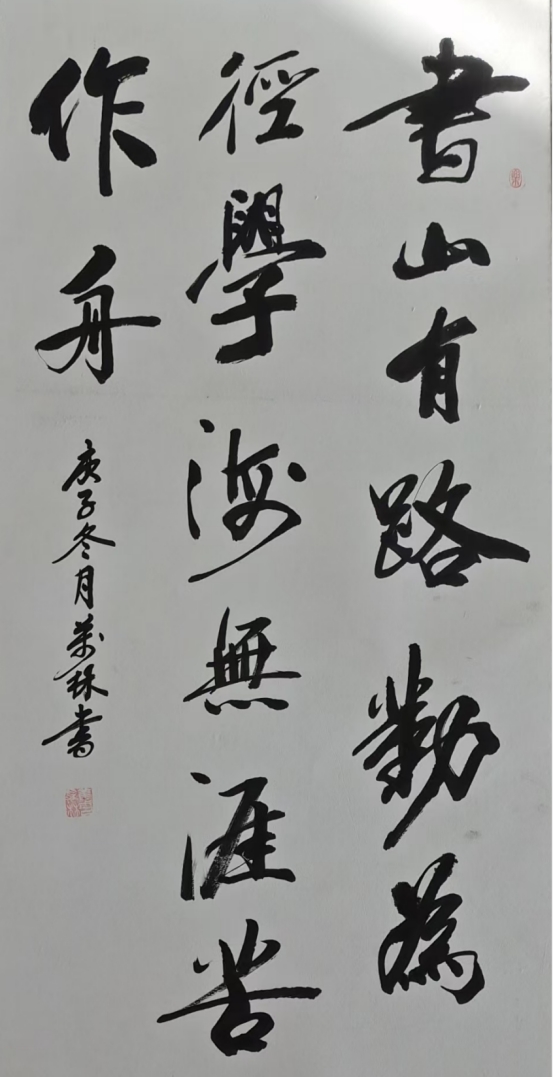 書山有路勤為
徑學海無涯苦
作舟
庚子冬月萬林書